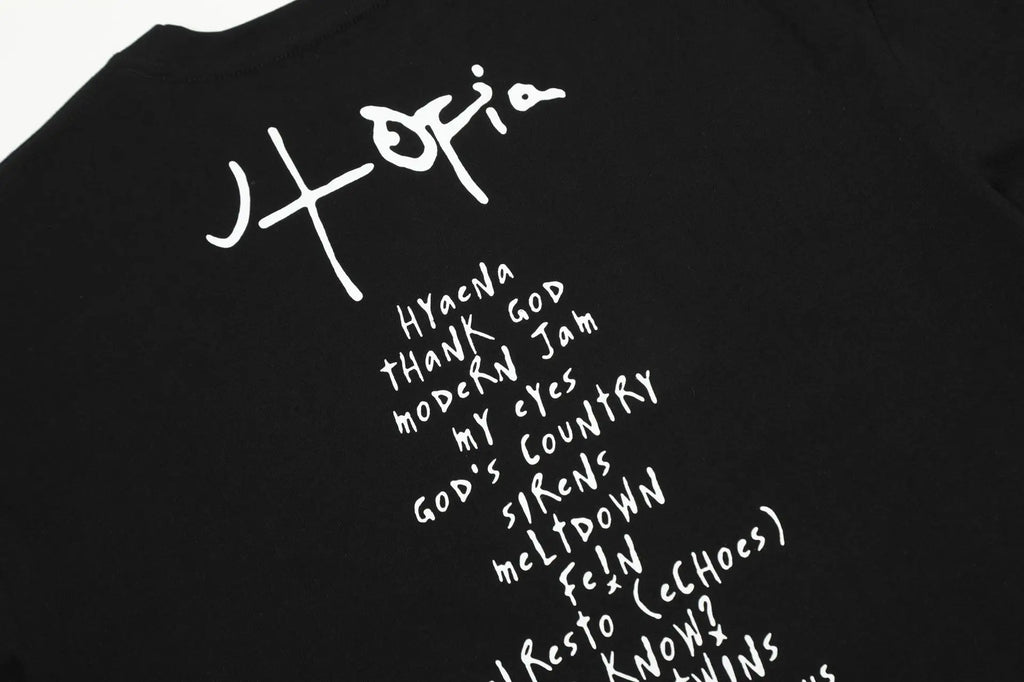 Utopia
HYaeNa
tHaNK GOD
moDeRN Jam
mY eYes
GOD's COUNtRY
sIReNs
meLtDOWN
Fe!N
(eCHOes)
KNOW?
tWINs